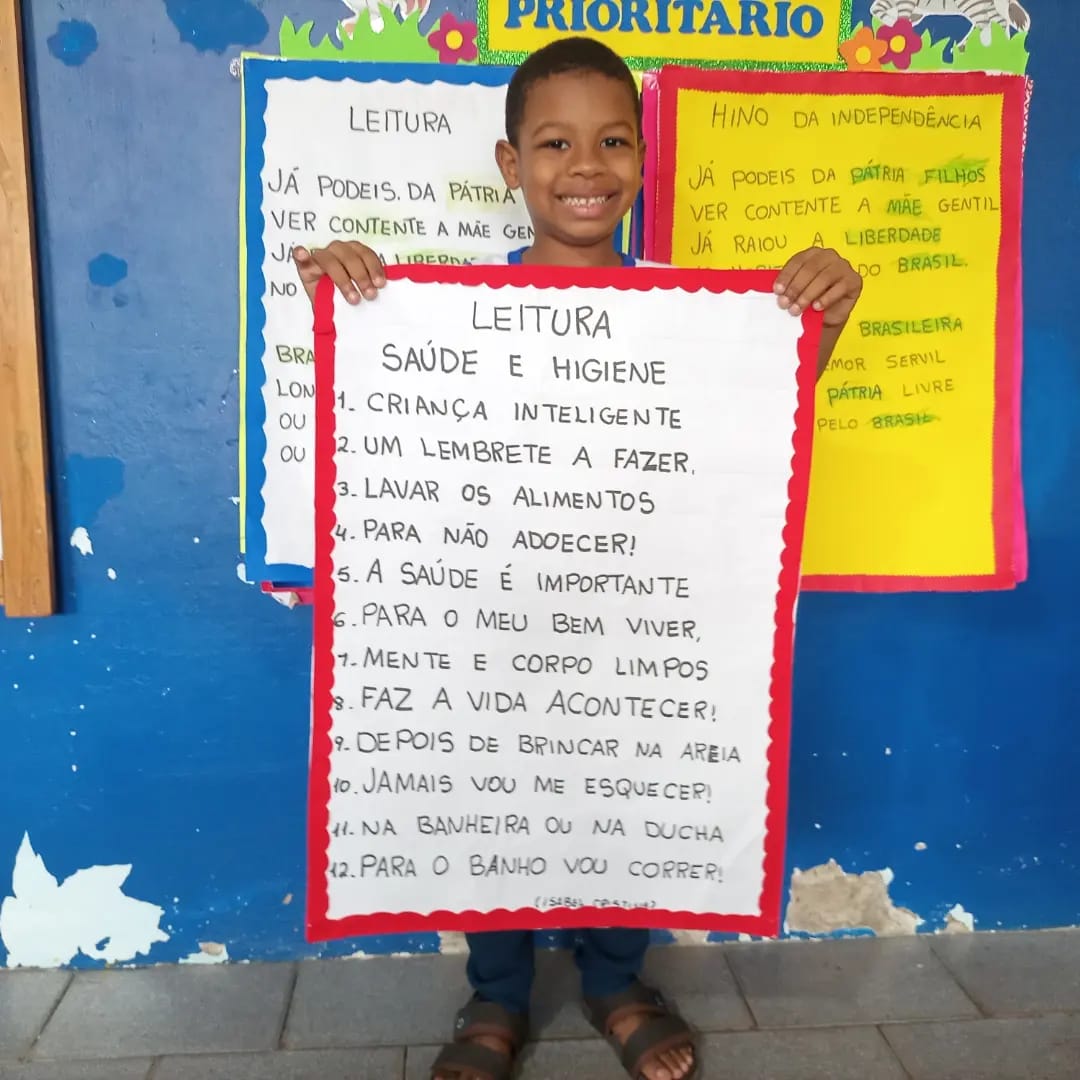 PRIORITÁRIO
LEITURA
JÁ PODEIS. DA PÁTRIA
VER CONTENTE A MÃE GEN
JÁ A LIBERDA
NO
BRA
LON
OU
OU
HINO DA INDEPENDÊNCIA
JÁ PODEIS DA PÁTRIA FILHOS
VER CONTENTE A MÃE GENTIL
JÁ RAIOU A LIBERDADE
DO BRASIL.
BRASILEIRA
EMOR SERVIL
PÁTRIA LIVRE
PELO BRASIL
LEITURA
SAÚDE E HIGIENE
1. CRIANÇA INTELIGENTE
2. UM LEMBRETE A FAZER,
3. LAVAR OS ALIMENTOS
4. PARA NÃO ADOECER!
5. A SAÚDE É IMPORTANTE
6. PARA O MEU BEM VIVER,
7. MENTE E CORPO LIMPOS
8. FAZ A VIDA ACONTECER!
9. DEPOIS DE BRINCAR NA AREIA
10. JAMAIS VOU ME ESQUECER!
11. NA BANHEIRA OU NA DUCHA
12. PARA O BANHO VOU CORRER!
(ISABEL CRISTINA)